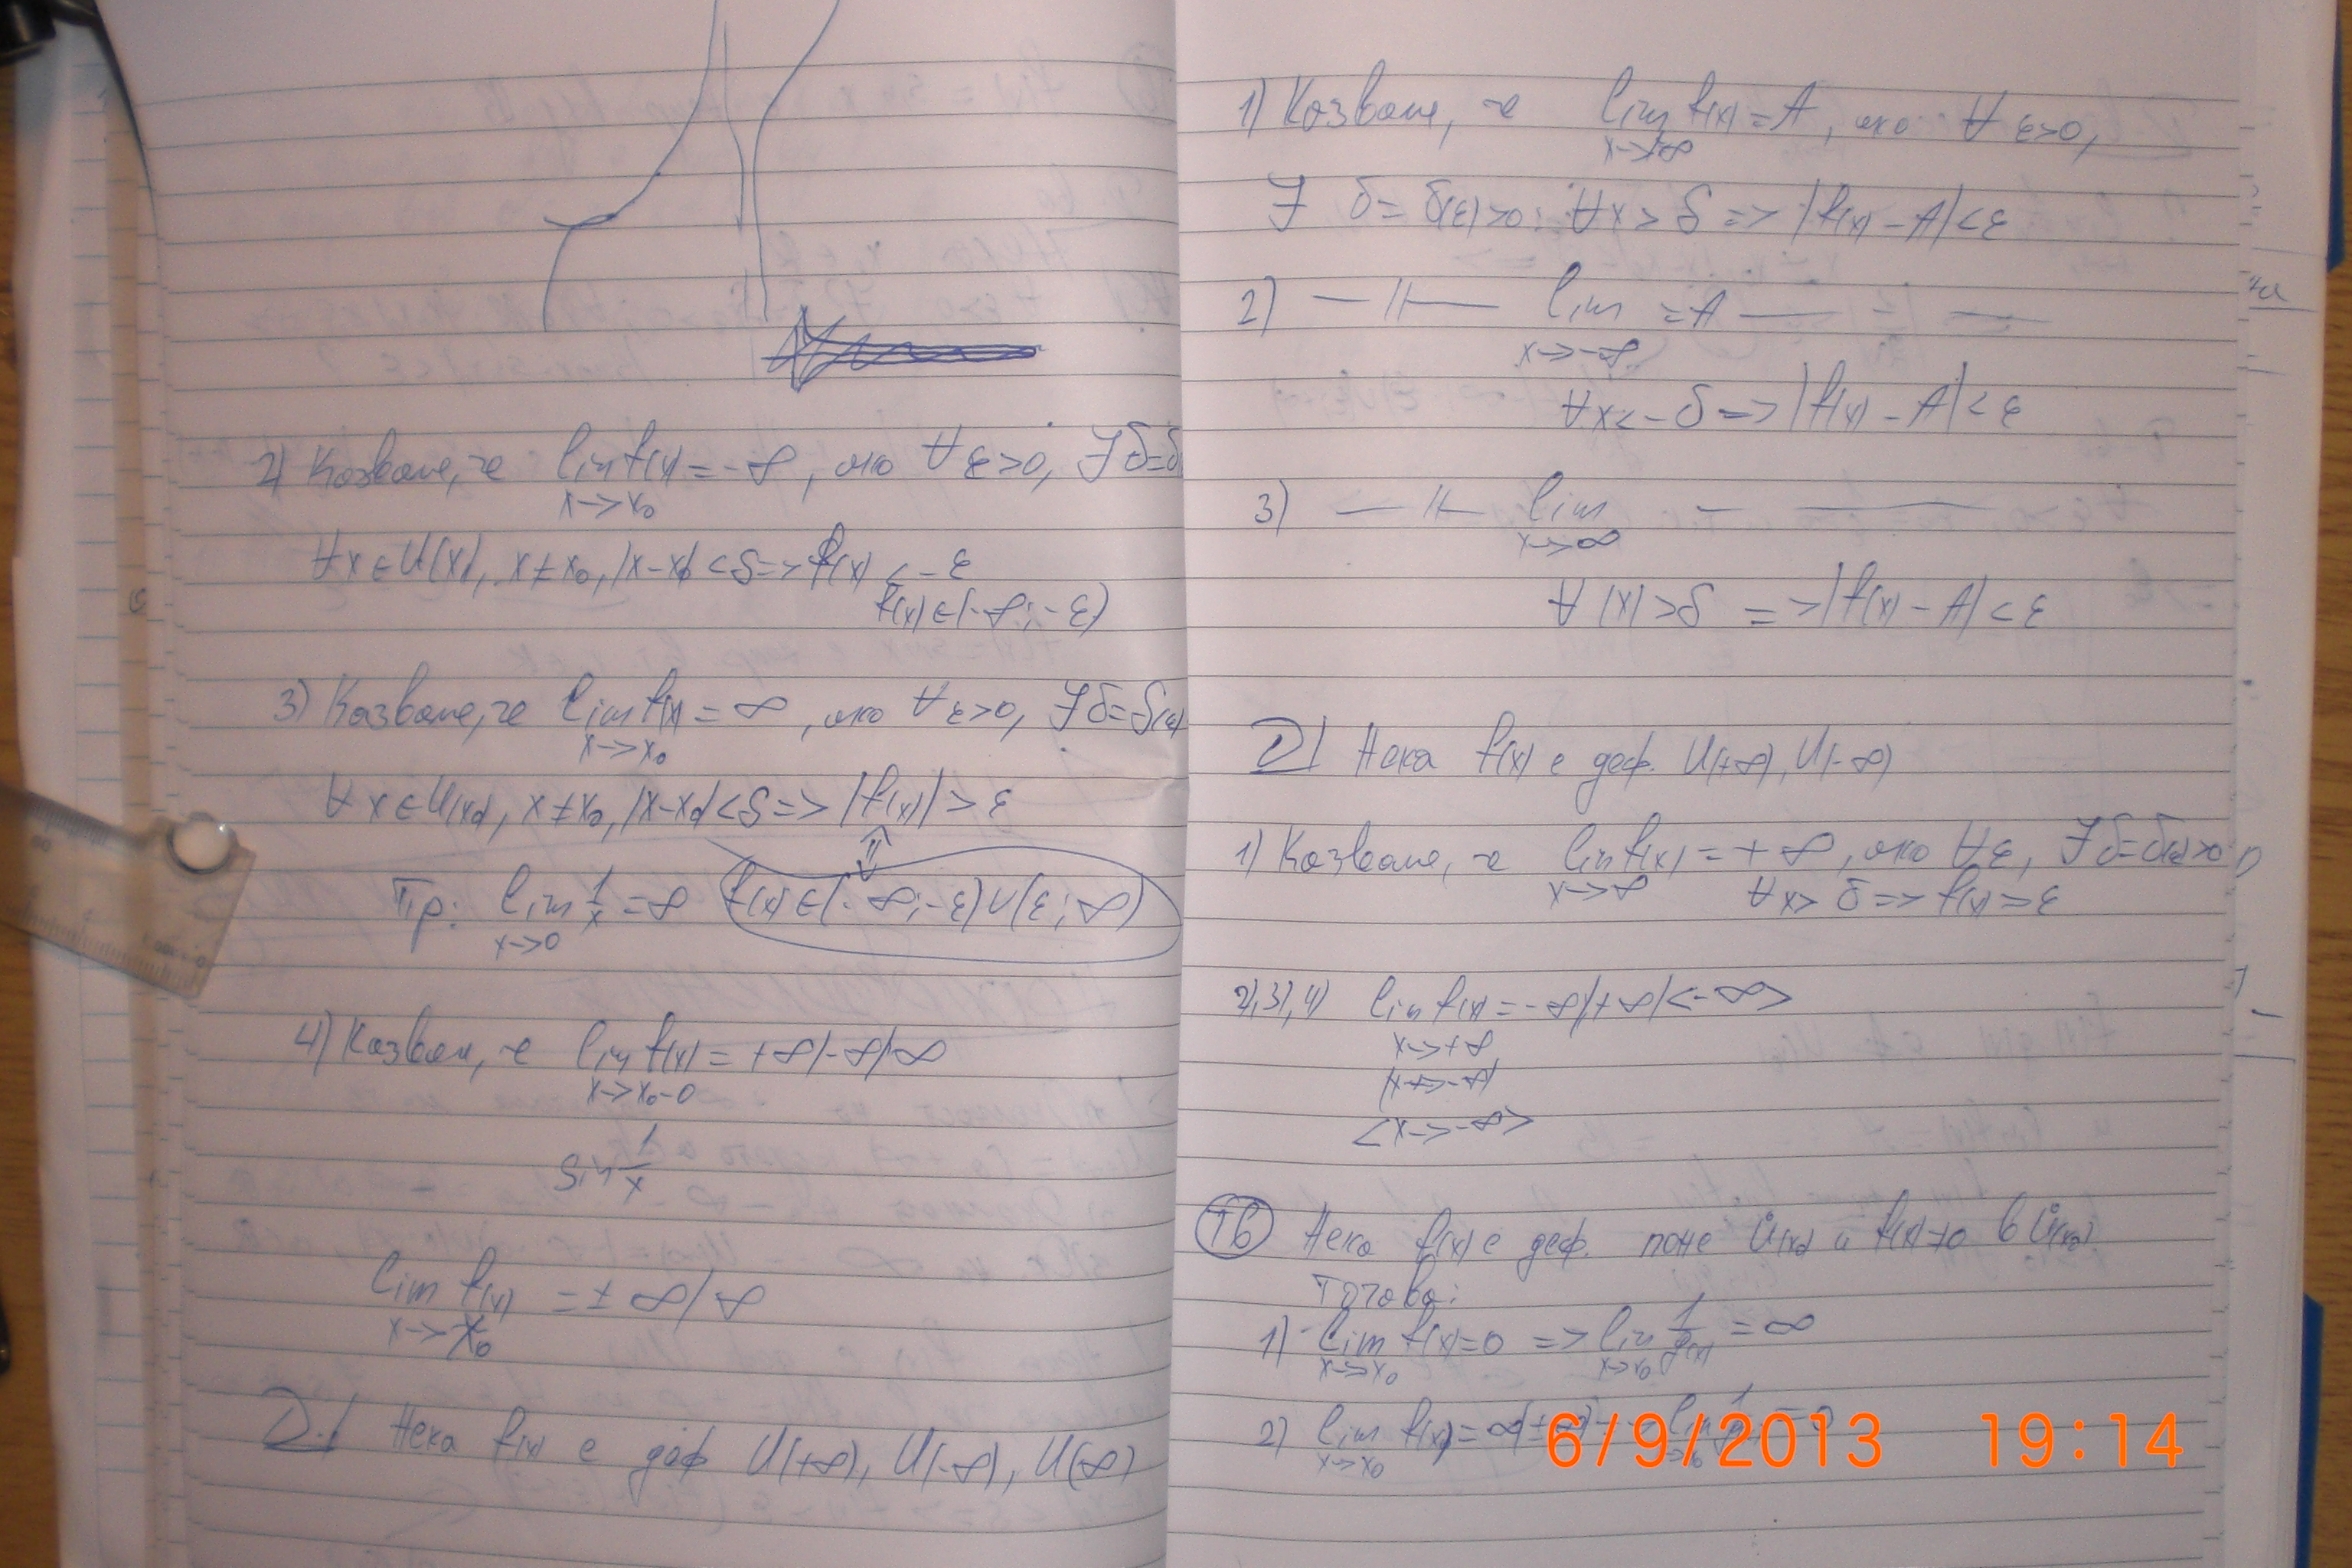 2) Казваме, че lim f(x) = -∞, ако ∀ε>0, ∃δ=δ
x->x₀
∀x∈U(x₀), x≠x₀, |x-x₀|<δ => f(x) < -ε
f(x)∈(-∞;-ε)
3) Казваме, че lim f(x) = ∞, ако ∀ε>0, ∃δ=δ(ε)
x->x₀
∀x∈U(x₀), x≠x₀, |x-x₀|<δ => |f(x)| > ε
Пр: lim 1/x = ∞ f(x)∈(-∞;-ε)∪(ε;∞)
x->0
4) Казвам, че lim f(x) = +∞/-∞/∞
x->x₀-0
sin 1/x
lim f(x) = ±∞/∞
x->x₀
D.1 Нека f(x) е деф U(+∞), U(-∞), U(∞)
1) Казваме, че lim f(x) = A, ако ∀ε>0,
x->+∞
∃ δ = δ(ε)>0: ∀x>δ => |f(x) - A|<ε
2) — || — lim = A — —
x->-∞
∀x<-δ => |f(x) - A|<ε
3) — || — lim — —
x->∞
∀|x|>δ => |f(x) - A|<ε
D1 Нека f(x) е деф. U(+∞), U(-∞)
1) Казваме, че lim f(x) = +∞, ако ∀ε, ∃δ=δ(ε)>0
x->∞ ∀x>δ => f(x)=ε
2),3),4) lim f(x) = -∞/+∞/<-∞>
x->+∞
(x->-∞)
<x->-∞>
Тв Нека f(x) е деф. поне Ů(x₀) и f(x)≠0 в Ů(x₀)
Тогава:
1) lim f(x)=0 => lim 1/f(x) = ∞
x->x₀ x->x₀
2) lim f(x) = ∞ = 0
x->x₀
6/9/2013 19:14